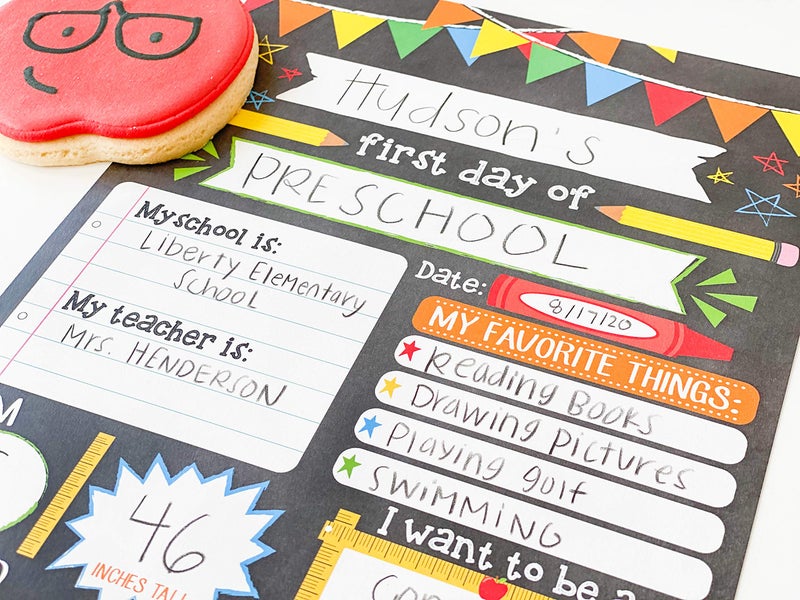 Hudson's
first day of
PRESCHOOL
My school is:
Liberty Elementary
School
My teacher is:
Mrs. HENDERSON
Date: 8/17/20
MY FAVORITE THINGS:
Reading Books
Drawing Pictures
Playing golf
SWIMMING
46
INCHES TALL
I want to be a